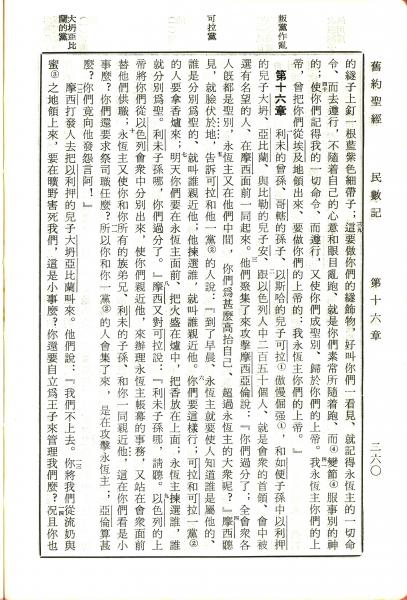 舊約聖經　民數記　第十六章　二六〇
的繸子上釘一根藍紫色細帶子；這要做你們的繸飾物，好叫你們一看見、就記得永恆主的一切命
令、而去遵行，不隨着自己的心意和眼目亂跑、就是你們素常所隨着跑，而④變節④服事別的神
的；使你們記得我的一切命令、而遵行，又使你們成聖別、歸於你們的上帝。我永恆主你們的上
帝，曾把你們從埃及地領出來、要做你們的上帝的；我永恆主你們的上帝。』
叛黨作亂
第十六章　利未的曾孫、哥轄的孫子、以斯哈的兒子可拉①傲慢倔强①，和如便子孫中以利押
的兒子大坍、亞比蘭、與比勒的兒子安、跟以色列人中二百五十個人、就是會衆的首領、會中被
選有名望的人、在摩西面前一同起來。他們聚集了來攻擊摩西亞倫說：『你們過分了；全會衆各
人旣都是聖別，永恆主又在他們中間，你們爲甚麼高抬自己、超過永恆主的大衆呢？』摩西聽
可拉黨
見，就臉伏於地，告訴可拉和他一黨②的人說：『到了早晨、永恆主就要使人知道誰是屬他的、
誰是分別爲聖的、就叫誰親近他；他揀選誰，就叫誰親近他。你們要這樣行；可拉和可拉一黨②
的人要拿香爐來；明天你們要在永恆主面前、把火盛在爐中，把香放在上面；永恆主揀選誰，誰
就分別爲聖。利未子孫哪，你們過分了。』摩西又對可拉說：『利未子孫哪，請聽。以色列的上
帝將你們從以色列會衆中分別出來，使你們親近他，來辦理永恆主帳幕的事務，又站在會衆面前
替他們供職；永恆主又使你和你所有的族弟兄、利未的子孫、和你一同親近他；這在你們看是小
事麼？你們還要求祭司職任麼？所以你和你一黨②的人會集了來，是在攻擊永恆主；亞倫算甚
麼？你們竟向他發怨言阿！』
大坍亞比
蘭的黨
摩西打發人去把以利押的兒子大坍亞比蘭叫來。他們說：『我們不上去。你將我們從流奶與
蜜③之地領上來，要在曠野害死我們，這是小事麼？你還要自立爲王子來管理我們麼？況且你也